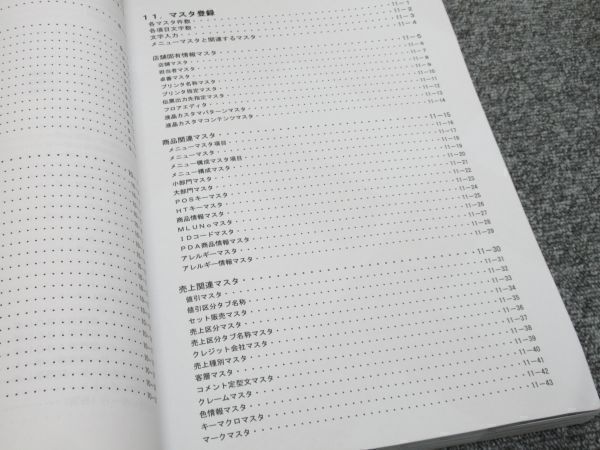 11. マスタ登録
各マスタ件数・・・11-1
各項目文字数・・・11-2
文字入力・・・11-3
メニューマスタと関連するマスタ・・・11-4
店舗固有情報マスタ・・・11-5
店舗マスタ・・・11-6
担当者マスタ・・・11-7
卓番マスタ・・・11-8
プリンタ名称マスタ・・・11-9
プリンタ指定マスタ・・・11-10
伝票出力先指定マスタ・・・11-11
フロアエディタ・・・11-12
液晶カスタマパターンマスタ・・・11-13
液晶カスタマコンテンツマスタ・・・11-14
商品関連マスタ・・・11-15
メニューマスタ項目・・・11-16
メニューマスタ・・・11-17
メニュー構成マスタ項目・・・11-18
メニュー構成マスタ・・・11-19
小部門マスタ・・・11-20
大部門マスタ・・・11-21
POSキーマスタ・・・11-22
HTキーマスタ・・・11-23
商品情報マスタ・・・11-24
MLUNoマスタ・・・11-25
IDコードマスタ・・・11-26
PDA商品情報マスタ・・・11-27
アレルギーマスタ・・・11-28
アレルギー情報マスタ・・・11-29
売上関連マスタ・・・11-30
値引マスタ・・・11-31
値引区分タブ名称・・・11-32
セット販売マスタ・・・11-33
売上区分マスタ・・・11-34
売上区分タブ名称マスタ・・・11-35
クレジット会社マスタ・・・11-36
売上種別マスタ・・・11-37
客層マスタ・・・11-38
コメント定型文マスタ・・・11-39
クレームマスタ・・・11-40
色情報マスタ・・・11-41
キーマクロマスタ・・・11-42
マークマスタ・・・11-43